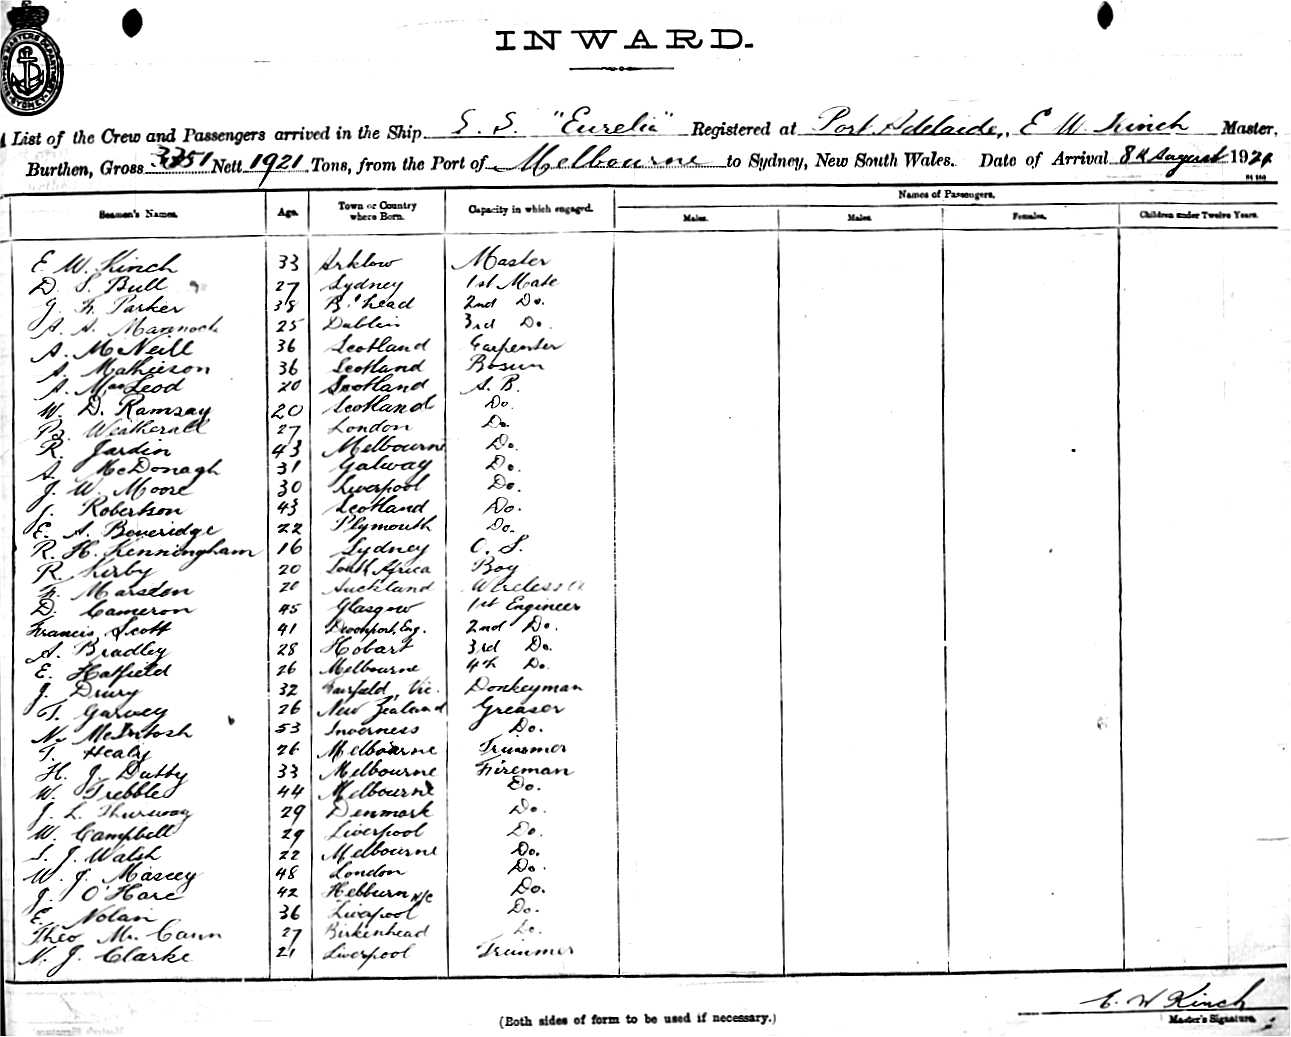 SHIPPING MASTERS DEPARTMENT SYDNEY
INWARD.
A List of the Crew and Passengers arrived in the Ship S. S. "Eurelia" Registered at Port Adelaide, E W Kinch Master,
Burthen, Gross 3351 Nett 1921 Tons, from the Port of Melbourne to Sydney, New South Wales. Date of Arrival 8th August 192
Seamen's Names. Age. Town or Country where Born. Capacity in which engaged. Names of Passengers.
Males. Males. Females. Children under Twelve Years.
E. W. Kinch 33 Arklow Master
D. S. Bull 27 Sydney 1st Mate
Parker 38 B'head 2nd Do.
A. A. Mannock 25 Dublin 3rd Do.
A. McNeill 36 Scotland Carpenter
A. Mathieson 36 Scotland Bosun
A. MacLeod 20 Scotland A. B.
W. D. Ramsay 20 Scotland Do.
Weatherall 27 London Do.
R. Jardin 43 Melbourne Do.
A. McDonagh 31 Galway Do.
J. W. Moore 30 Liverpool Do.
J. Robertson 43 Scotland Do.
E. A. Beveridge 22 Plymouth Do.
R. H. Kenningham 16 Sydney O. S.
R. Kirby 20 South Africa Boy
Marsden Auckland Wireless
D. Cameron 45 Glasgow 1st Engineer
Francis Scott 41 Devonport, Eng. 2nd Do.
A. Bradley 28 Hobart 3rd Do.
E. Hatfield 26 Melbourne 4th Do.
J. Drury 32 Fairfield, Vic. Donkeyman
T. Garvey 26 New Zealand Greaser
N. McIntosh 53 Inverness Do.
T. Healy 26 Melbourne Trimmer
H. J. Dubby 33 Melbourne Fireman
W. Trebble 44 Melbourne Do.
J. L. 29 Denmark Do.
W. Campbell 29 Liverpool Do.
S. J. Walsh 22 Melbourne Do.
W. J. Massey 48 London Do.
J. O'Hare 42 Hebburn N/C Do.
E. Nolan 36 Liverpool Do.
Theo McCann 27 Birkenhead Do.
N. J. Clarke 21 Liverpool Trimmer
E. W Kinch
Master's Signature.
(Both sides of form to be used if necessary.)